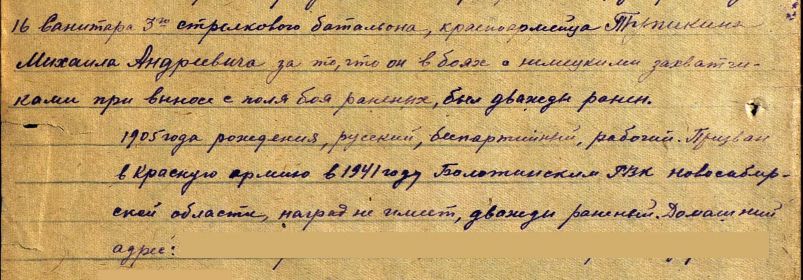 16 Санитара 3го стрелкового батальона, красноармейца
Михаила Андреевича за то, что он в боях с немецкими захватчи-
ками при выносе с поля боя раненых, был дважды ранен.
1905 года рождения, русский, беспартийный, рабочий. Призван
в Красную армию в 1941 году Болотнинским РВК Новосибир-
ской области, наград не имеет, дважды раненый. Домашний
адрес: